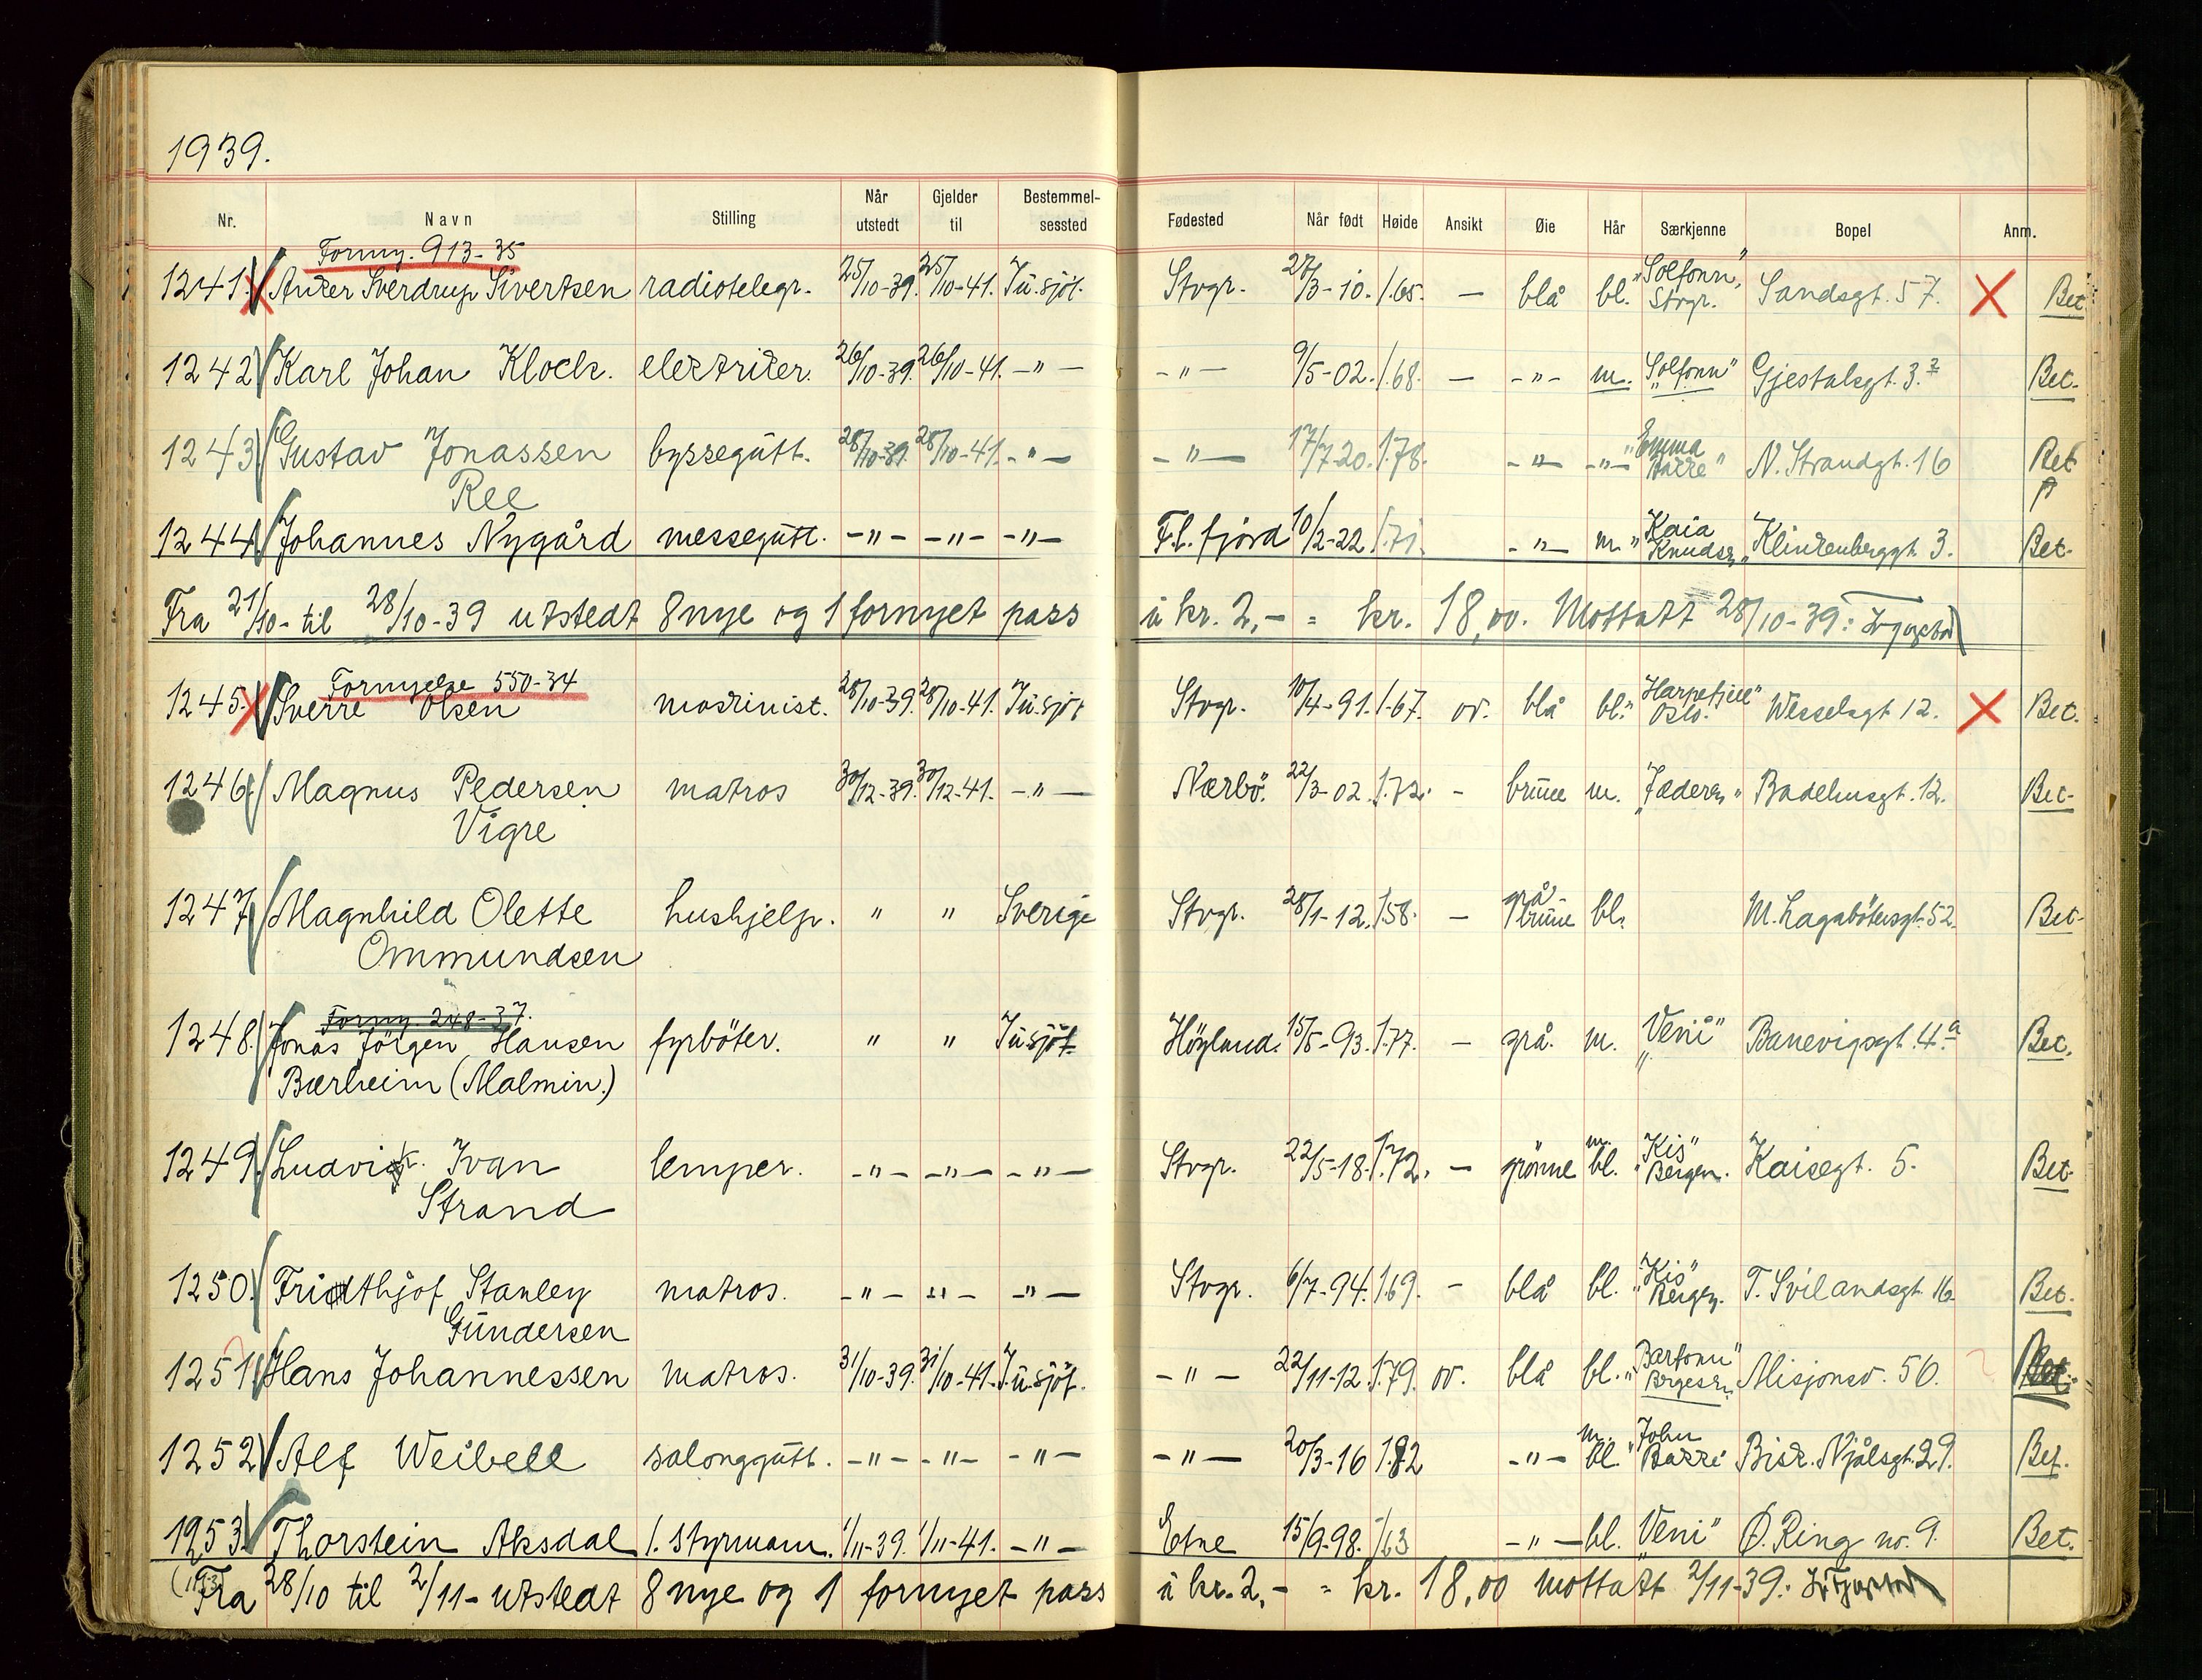 1939.
Nr. Navn Stilling Når utstedt Gjelder til Bestemmel-sessted Fødested Når født Høide Ansikt Øie Hår Særkjenne Bopel Anm.
Forny. 913-35
1241. Anker Sverdrup Sivertsen radiotelegr. 25/10-39. 25/10-41. Tü. sjöt. Stvgr. 27/3-10. 1.65. — blå bl. "Solfonn," Stvgr. Sandsgt. 57. Bet.
1242 Karl Johan Klock. elektriker. 26/10-39. 26/10-41. -"- -"- 9/5-02. 1.68. — -"- m. "Solfonn" Gjestalsgt. 3.² Bet.
1243 Gustav Jonassen byssegütt. 28/10-39. 28/10-41. -"- -"- 17/7-20. 1.78. -"- -"- "Emma Bakke" N. Strandgt. 16 Bet
Ree
1244 Johannes Nygård messegütt. -"- -"- -"- Fl. fjord 10/2-22 1.71. -"- m. "Kaia Knudsen" Klinkenberggt. 3. Bet.
Fra 21/10- til 28/10-39 utstedt 8 nye og 1 fornyet pass à kr. 2,- = kr. 18,00. Mottatt 28/10-39:
Fornyelse 550-34
1245. Sverre Olsen maskinist. 28/10-39. 28/10-41. Tü. sjöt Stvgr. 10/4-91. 1.67. ov. blå bl. "Harpefjell" Oslo. Wesselsgt 12. Bet.
1246. Magnus Pedersen matros 30/12-39. 30/12-41. -"- Nærbö. 22/3-02. 1.72. - brüne m. "Jæderen" Badehusgt. 12. Bet.
Vigre
1247 Magnhild Olette hushjelp. " " Sverige Stvgr. 28/1-12. 1.58. — grå-brüne bl. M. Lagabötersgt. 52. Bet.
Ommundsen
Forny. 248-37.
1248. Jonas Jörgen Hansen fyrböter. " " Tü sjöt. Höyland. 15/5-93. 1.77. — grå. m. "Veni" Banevigsgt. 4.a Bet.
Bærheim (Malmin.)
1249. Ludvik. Ivan lemper. -"- -"- -"- Stvgr. 22/5-18. 1.72. — grönne m. bl. "Kis" Bergen. Kaisegt. 5. Bet.
Strand
1250. Fridthjof Stanley matros. -"- -"- -"- Stvgr. 6/7-94. 1.69. - blå bl. "Kis" Bergen. T. Svilandsgt. 16. Bet.
Gündersen
1251. Hans Johannessen matros. 31/10-39. 31/10-41. Tü. sjöt. -"- 22/11-12. 1.79. ov. blå bl. "Barfonn" Bergesen. Misjonsv. 50. ? Bet.
1252 Alf Weibell salonggütt. -"- -"- -"- -"- 20/3-16 1.82 -"- m. bl. "John Bakke" Bisk. Njålsgt. 29. Bet.
1253. Thorstein Aksdal 1. styrmann. 1/11-39. 1/11-41. -"- Etne 15/9-98. 1.63 -"- bl. "Veni" Ø. Ring no. 9. Bet.
Fra 28/10 til 2/11- utstedt 8 nye og 1 fornyet pass à kr. 2,- = kr. 18,00 mottatt 2/11-39: